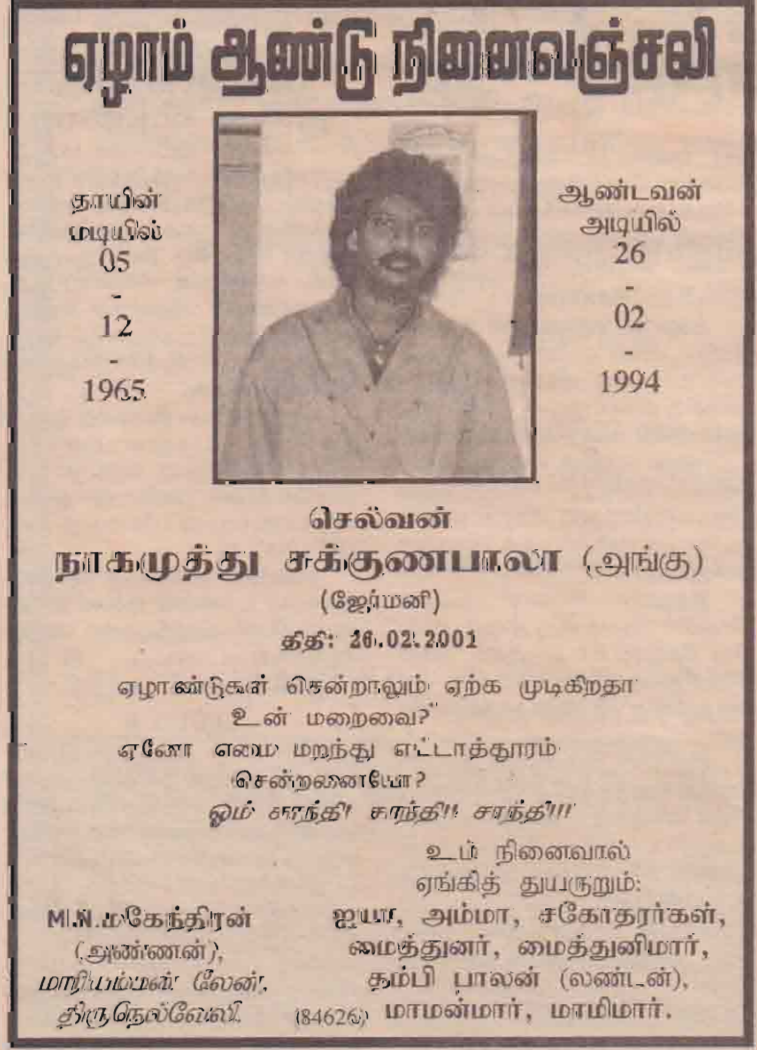 ஏழாம் ஆண்டு நினைவஞ்சலி
தாயின்
மடியில்
05
-
12
-
1965
ஆண்டவன்
அடியில்
26
-
02
-
1994
செல்வன்
நாகமுத்து சக்குணபாலா (அங்கு)
(ஜேர்மனி)
திதி: 26.02.2001
ஏழாண்டுகள் சென்றாலும் ஏற்க முடிகிறதா
உன் மறைவை?
ஏனோ எமை மறந்து எட்டாத்தூரம்
சென்றனையோ?
ஓம் சாந்தி! சாந்தி!! சாந்தி!!!
உம் நினைவால்
ஏங்கித் துயருறும்:
ஐயா, அம்மா, சகோதரர்கள்,
மைத்துனர், மைத்துனிமார்,
தம்பி பாலன் (லண்டன்),
மாமன்மார், மாமிமார்.
M.N.மகேந்திரன்
(அண்ணன்),
மாரியம்மன் லேன்,
திருநெல்வேலி.
(84626)